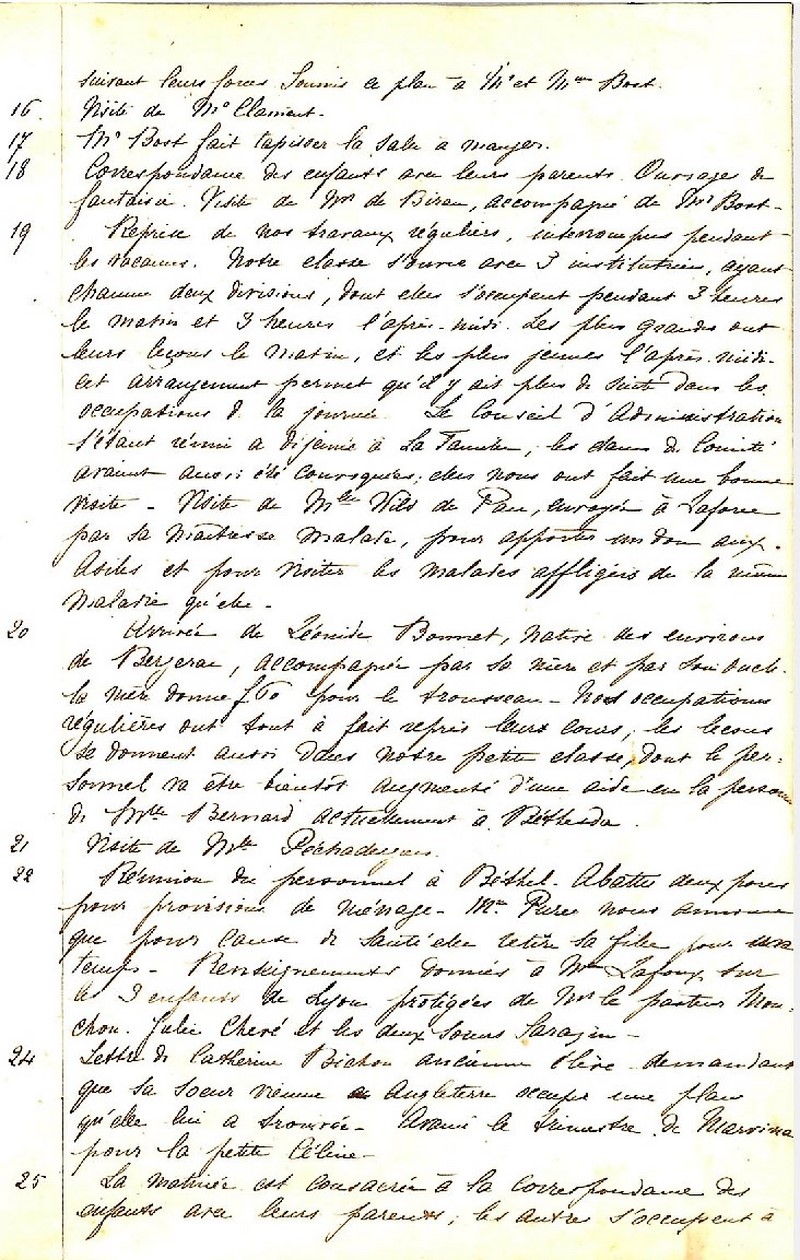 suivant leurs forces Soumis ce plan à Mr et Mme Bost.
16 Visite de Mr Clament.
17 Mr Bost fait tapisser la salle à manger.
18 Correspondance des enfants avec leurs parents. Ouvrages de
fantaisie. Visite de Mr de Biran, accompagné de Mr Bost -
19 Reprise de nos travaux réguliers, interrompus pendant
les vacances. Notre classe s'ouvre avec 3 institutrices, ayant
chacune deux divisions, dont elles s'occupent pendant 3 heures
le matin et 3 heures l'après-midi. Les plus grandes ont
leurs leçons le matin, et les plus jeunes l'après-midi.
cet arrangement permet qu'il y ait plus de suite dans les
occupations de la journée. Le Conseil d'Administration
s'étant réuni a déjeuné à La Famille, les dames du Comité
avaient aussi été convoquées; elles nous ont fait une bonne
visite - Visite de Mlle Wild de Pau, envoyée à Laforce
par sa maîtresse malade, pour apporter un don aux
Asiles et pour visiter les malades affligées de la même
maladie qu'elle -
20 Arrivée de Léonide Bonnet, native des environs
de Bergerac, accompagnée par sa mère et par son oncle.
la mère donne f 60 pour le trousseau - Nos occupations
régulières ont tout à fait repris leurs cours, les leçons
se donnent aussi dans notre petite classe, dont le per-
sonnel va être bientôt augmenté d'une aide en la personne
de Mlle Bernard actuellement à Béthesda.
21 Visite de Mlle
22 Réunion du personnel à Béthel - Abattu deux porcs
pour provisions de ménage - Mme nous annonce
que pour cause de santé elle retire sa fille pour un
temps - Renseignements donnés à Mme Lafoux sur
les 3 enfants de Lyon protégées de Mr le pasteur Mou-
chon. Julie Chevé et les deux soeurs Sarazin -
24 Lettre de Catherine Bichon ancienne élève demandant
que sa soeur vienne en Angleterre occuper une place
qu'elle lui a trouvée - le trimestre de
pour la petite Céline -
25 La matinée est consacrée à la correspondance des
enfants avec leurs parents; les autres s'occupent à